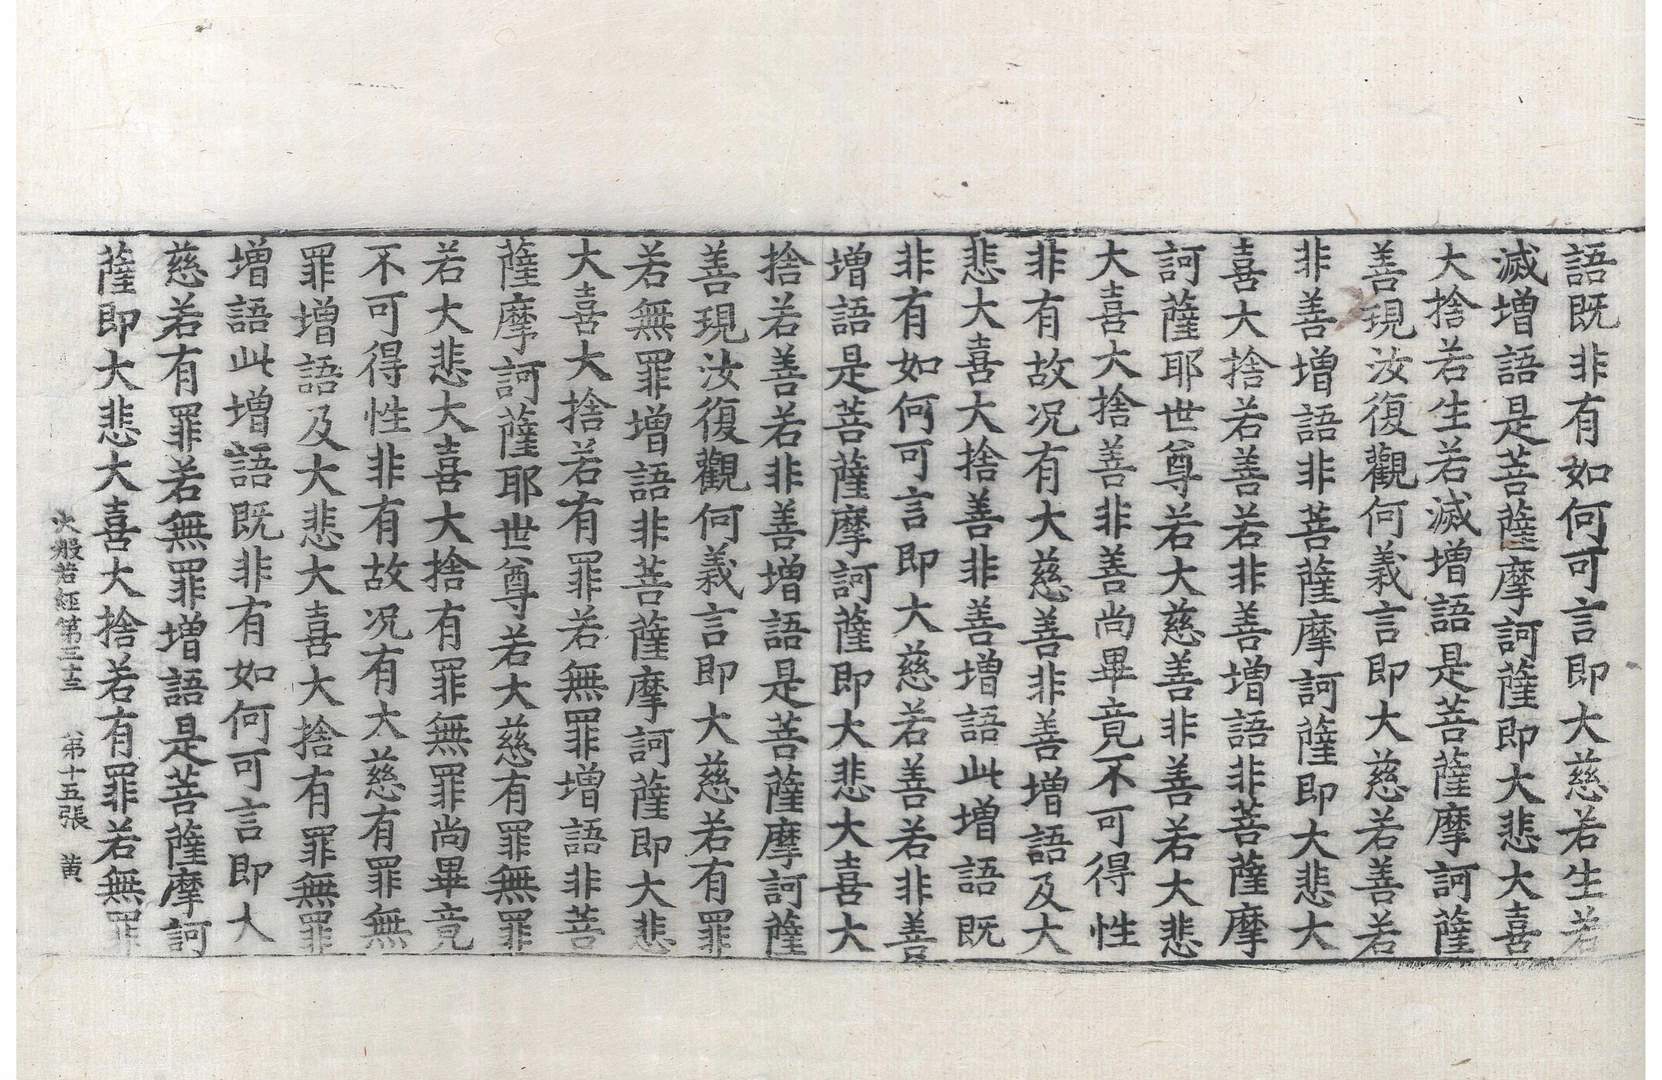 語既非有如何可言即大慈若生若
滅增語是菩薩摩訶薩即大悲大喜
大捨若生若滅增語是菩薩摩訶薩
善現汝復觀何義言即大慈若善若
非善增語非菩薩摩訶薩即大悲大
喜大捨若善若非善增語非菩薩摩
訶薩耶世尊若大慈善非善若大悲
大喜大捨善非善尚畢竟不可得性
非有故况有大慈善非善增語及大
悲大喜大捨善非善增語此增語既
非有如何可言即大慈若善若非善
增語是菩薩摩訶薩即大悲大喜大
捨若善若非善增語是菩薩摩訶薩
善現汝復觀何義言即大慈若有罪
若無罪增語非菩薩摩訶薩即大悲
大喜大捨若有罪若無罪增語非菩
薩摩訶薩耶世尊若大慈有罪無罪
若大悲大喜大捨有罪無罪尚畢竟
不可得性非有故况有大慈有罪無
罪增語及大悲大喜大捨有罪無罪
增語此增語既非有如何可言即大
慈若有罪若無罪增語是菩薩摩訶
薩即大悲大喜大捨若有罪若無罪
大般若経第三十三 第十五張 黄